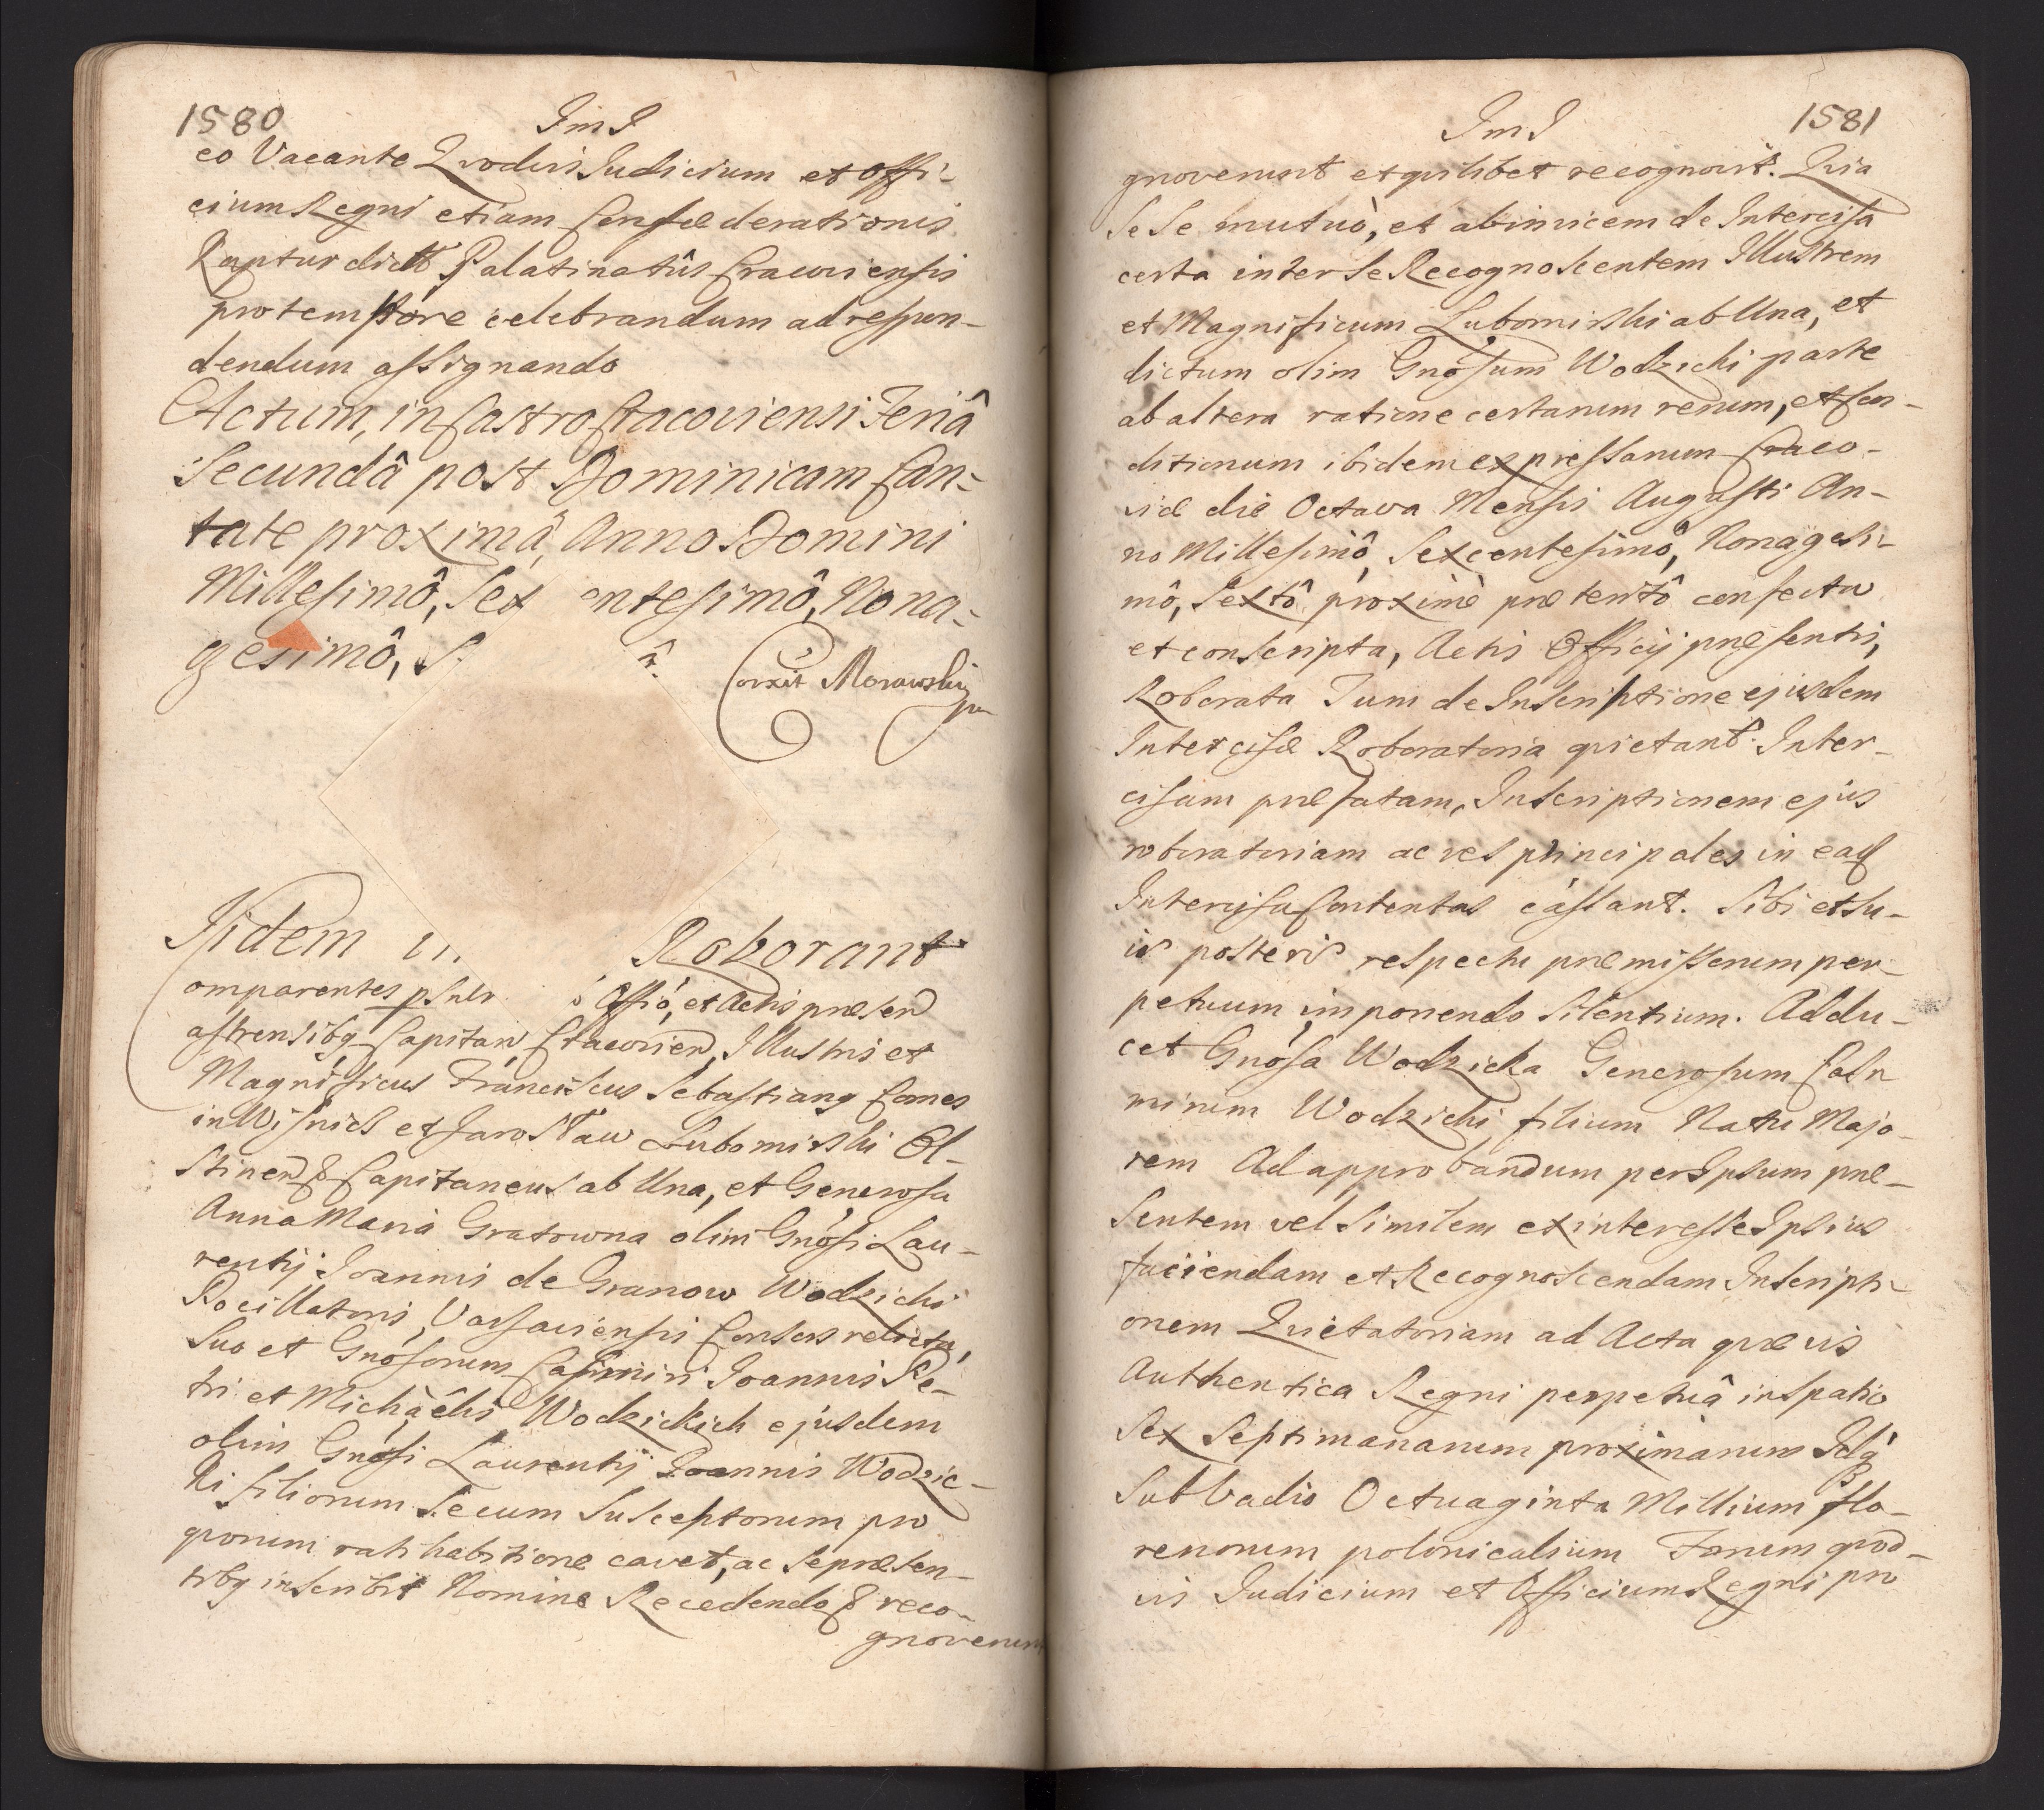 1580
ImJ
eo Vacante Quodvis Judicium et Offi-
cium Regni etiam Confæderationis
Kaptur dictt Palatinatûs Cracoviensis
pro tempore celebrandum ad respon-
dendum assignando
Actum, in Castro Cracoviensi Feriâ
Secundâ post Dominicam Can-
tate proximâ, Anno Domini
Millesimô, Sex entesimô, Nona-
gesimô, S. ô.
Corxit Morawski
Iidem Roborant
Comparentes psnlr Offiô, et Actis præsen
astrensibq Capitan Cracovien, Illustris et
Magnificus Franciscus Sebastianq Comes
in Wisnicz et Jarosław Lubomirski Ol-
stinen & Capitaneus ab Una, et Generosa
Anna Maria Gratowna olim Gnôsi Lau-
rentij Joannis de Granow Wodzicki
Pocillatoris Varsaviensis Consors relicta,
Suo et Gnôsorum Casimiri Joannis Pe-
tri et Michaêlis Wodzickich ejusdem
olim Gnôsi Laurentij Joannis Wodzic-
ki filiorum Secum Susceptorum pro
quorum ratihabitione cavet, ac se præsen-
tibq inscribit Nomine Recedendo & reco-
gnoverunt
1581
ImJ
gnoverunt et quilibet recognovit. Quia
Se Se mutuò, et abinvicem de Intercisa
certa inter Se Recognoscentem Illustrem
et Magnificum Lubomirski ab Una, et
dictum olim Gnôsum Wodzicki parte
ab altera ratione certarum rerum, et Con-
ditionum ibidem expressarum Craco-
viæ die Octava Mensis Augusti An-
no Millesimô, Sexcentesimô, Nonagesi-
mô, Sextô proximè præteritô confecta
et conscripta, Actis Officij præsentis,
Roborata Tum de Inscriptione ejusdem
Intercisæ Roboratoria quietant. Inter-
cisam præfatam, Inscriptionem ejus
roboratoriam ac res principales in eaq
Intercisa Contentas cassant. Sibi et su-
is posteris respectu præmissorum per-
petuum imponendo Silentium. Addu-
cet Gnôsa Wodzicka Generosum Casi
mirum Wodzicki, filium Natu Majo-
rem Ad approbandum per Ipsum præ-
sentem vel Similem ex interesse Ipsius
faciendam et Recognoscendam Inscripti-
onem Quietatoriam ad Acta quævis
Authentica Regni perpetuâ in spatio
Sex Septimanarum proximarum Idq
Sub Vadio Octuaginta Millium flo-
renorum polonicalium Forum quod-
vis Judicium et Officium Regni pro